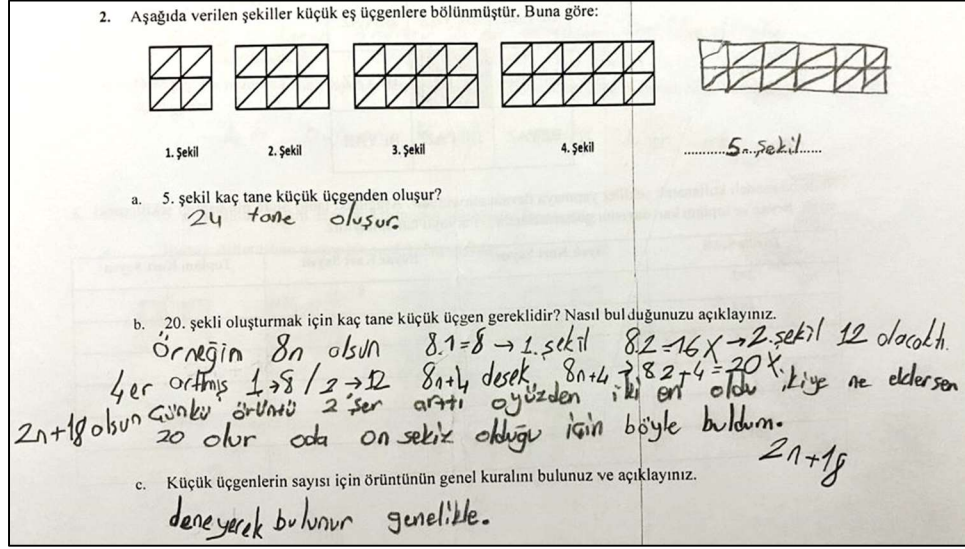 2. Aşağıda verilen şekiller küçük eş üçgenlere bölünmüştür. Buna göre:
1. Şekil 2. Şekil 3. Şekil 4. Şekil ...........5n..Şekil......
a. 5. şekil kaç tane küçük üçgenden oluşur?
24 tane oluşur.
b. 20. şekli oluşturmak için kaç tane küçük üçgen gereklidir? Nasıl bulduğunuzu açıklayınız.
Örneğin 8n olsun 8.1=8 → 1. şekil 8.2=16X→2. şekil 12 olacaktı.
4er artmış 1→8 / 2→12 8n+4 desek 8n+4 → 8.2+4=20X.
Çünkü örüntü 2'şer arttı oyüzden iki en oldu ikiye ne eklersen
2n+18 olsun 20 olur oda on sekiz olduğu için böyle buldum.
2n+18
c. Küçük üçgenlerin sayısı için örüntünün genel kuralını bulunuz ve açıklayınız.
deneyerek bulunur genelikle.